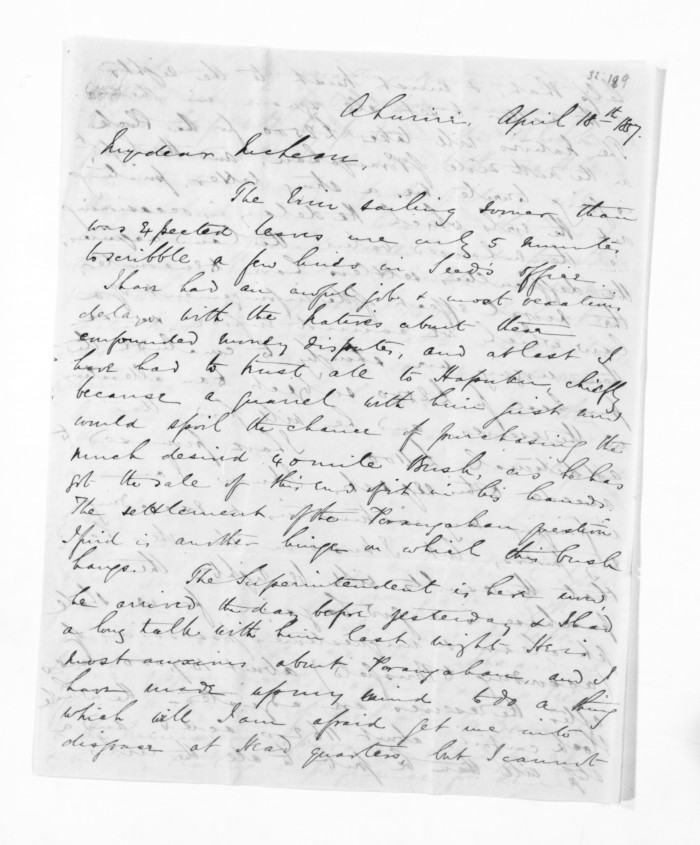 32 189
Ahuriri, April 18th 1857.
My dear McLean,
The Erin sailing sooner than
was expected leaves me only 5 minutes
to scribble a few lines in Seed's office.
I have had an awful job & most vexatious
delays with the Natives about these
confounded money disputes, and at last I
have had to trust all to Hapuku, chiefly
because a quarrel with him just now
would spoil the chance of purchasing the
much desired 40 mile Bush, as he has
got the sale of this end of it in his hands.
The settlement of the Porangahau question
I find is another hinge on which this bush
hangs. The Superintendent is here now,
he arrived the day before yesterday & I had
a long talk with him last night. He is
most anxious about Porangahau, and I
have made up my mind to do a thing
which will I am afraid get me into
disgrace at Head quarters, but I cannot